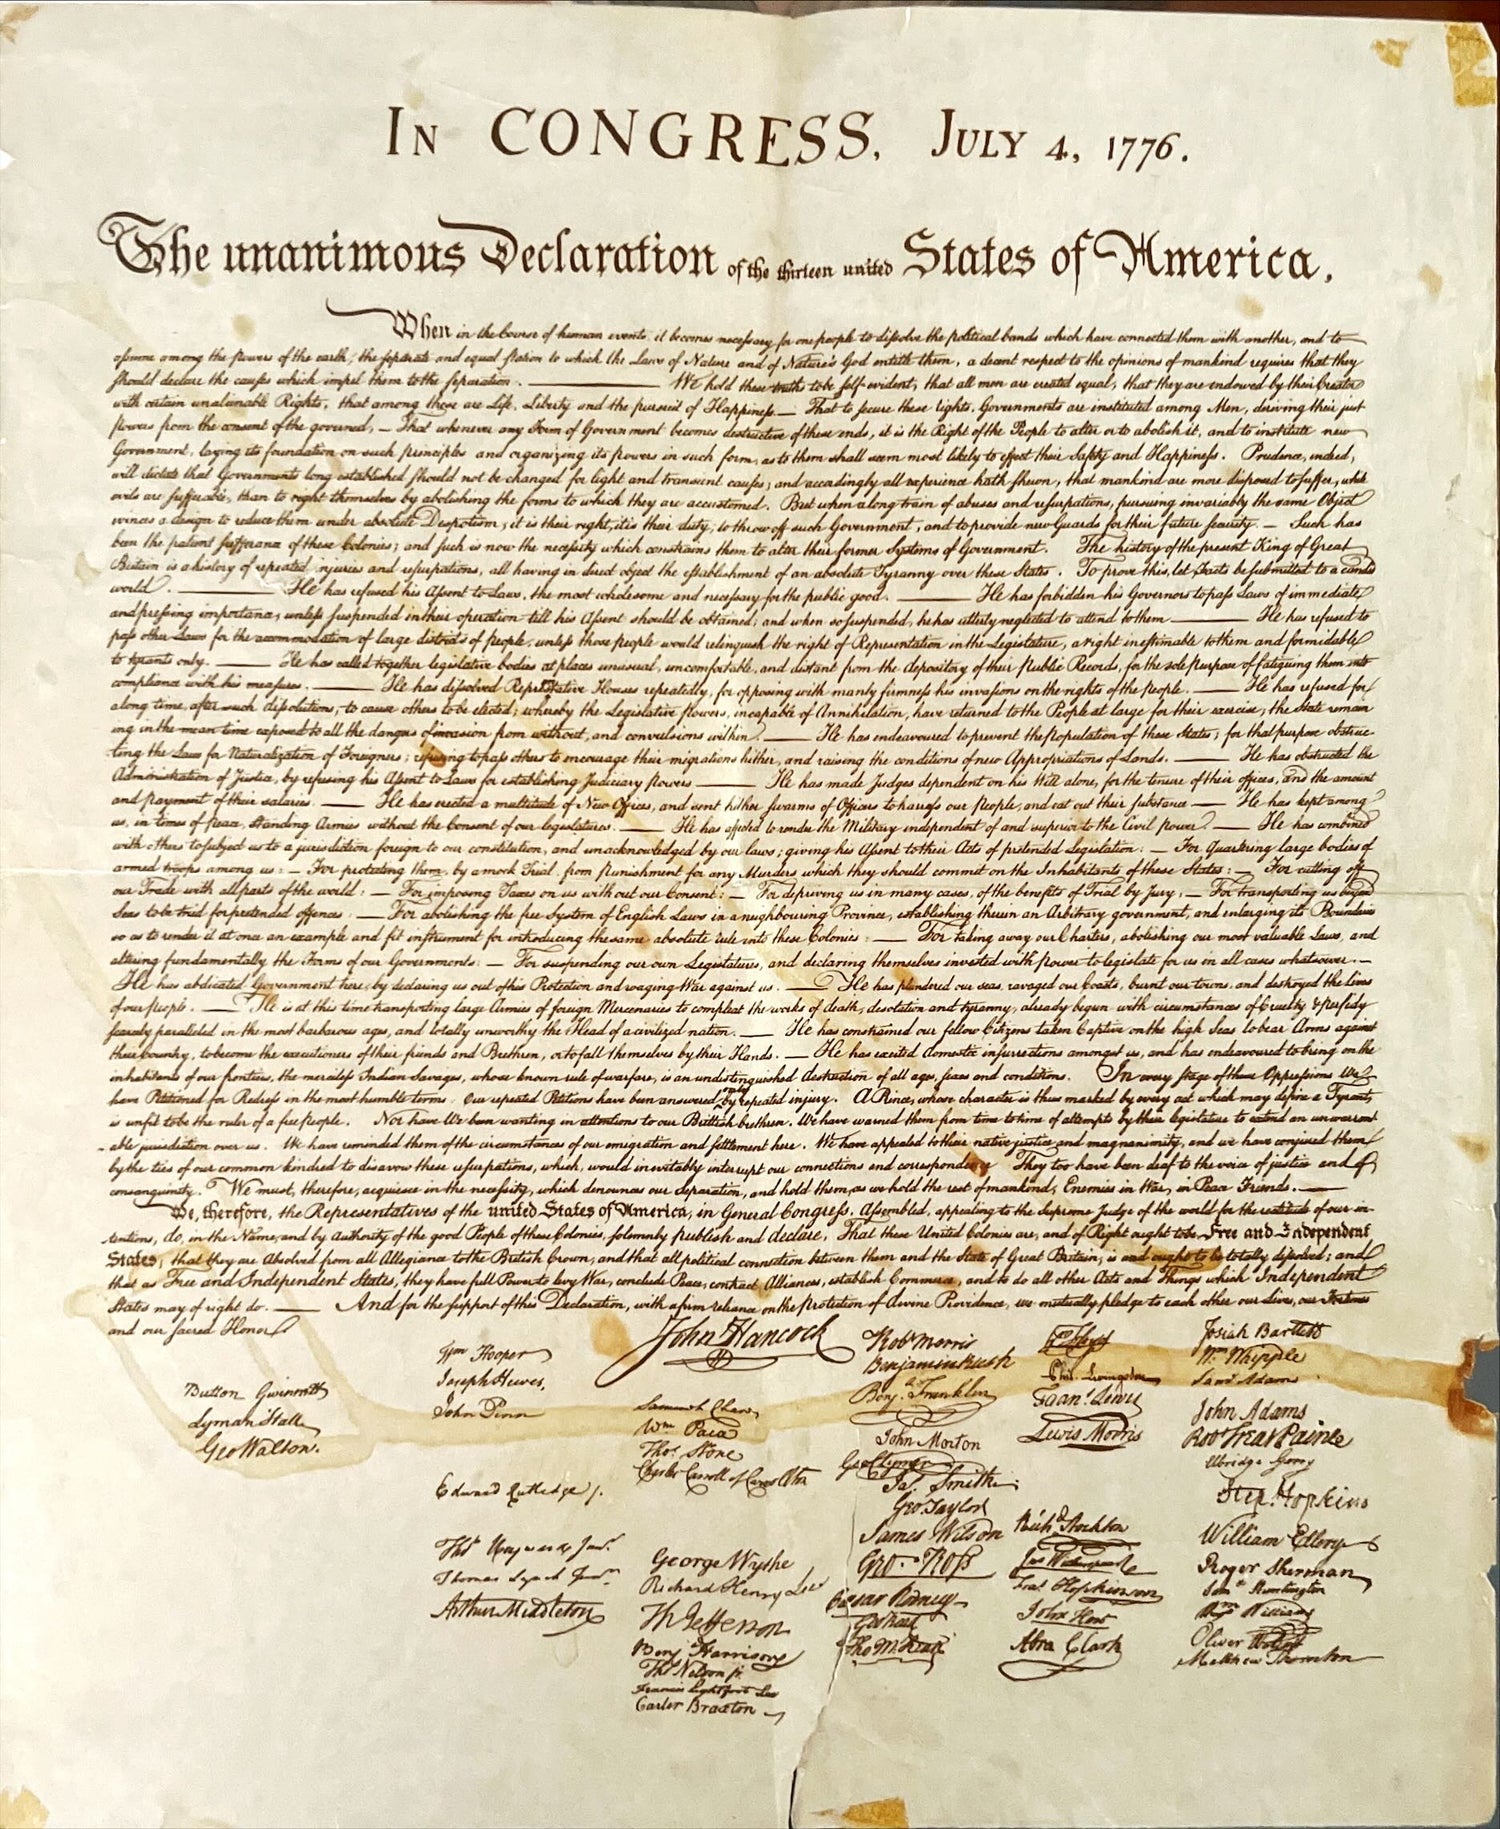 In CONGRESS, July 4, 1776.
The unanimous Declaration of the thirteen united States of America,
When in the Course of human events, it becomes necessary for one people to dissolve the political bands which have connected them with another, and to
assume among the powers of the earth, the separate and equal station to which the Laws of Nature and of Nature's God entitle them, a decent respect to the opinions of mankind requires that they
should declare the causes which impel them to the separation. We hold these truths to be self-evident, that all men are created equal, that they are endowed by their Creator
with certain unalienable Rights, that among these are Life, Liberty and the pursuit of Happiness.— That to secure these rights, Governments are instituted among Men, deriving their just
powers from the consent of the governed, — That whenever any Form of Government becomes destructive of these ends, it is the Right of the People to alter or to abolish it, and to institute new
Government, laying its foundation on such principles and organizing its powers in such form, as to them shall seem most likely to effect their Safety and Happiness. Prudence, indeed,
will dictate that Governments long established should not be changed for light and transient causes; and accordingly all experience hath shewn, that mankind are more disposed to suffer, while
evils are sufferable, than to right themselves by abolishing the forms to which they are accustomed. But when a long train of abuses and usurpations, pursuing invariably the same Object
evinces a design to reduce them under absolute Despotism, it is their right, it is their duty, to throw off such Government, and to provide new Guards for their future security. — Such has
been the patient sufferance of these Colonies; and such is now the necessity which constrains them to alter their former Systems of Government. The history of the present King of Great
Britain is a history of repeated injuries and usurpations, all having in direct object the establishment of an absolute Tyranny over these States. To prove this, let Facts be submitted to a candid
world. He has refused his Assent to Laws, the most wholesome and necessary for the public good. He has forbidden his Governors to pass Laws of immediate
and pressing importance, unless suspended in their operation till his Assent should be obtained; and when so suspended, he has utterly neglected to attend to them He has refused to
pass other Laws for the accommodation of large districts of people, unless those people would relinquish the right of Representation in the Legislature, a right inestimable to them and formidable
to tyrants only. He has called together legislative bodies at places unusual, uncomfortable, and distant from the depository of their Public Records, for the sole purpose of fatiguing them into
compliance with his measures. He has dissolved Representative Houses repeatedly, for opposing with manly firmness his invasions on the rights of the people. He has refused for
a long time, after such dissolutions, to cause others to be elected; whereby the Legislative powers, incapable of Annihilation, have returned to the People at large for their exercise; the State remain
ing in the mean time exposed to all the dangers of invasion from without, and convulsions within. He has endeavoured to prevent the population of these States; for that purpose obstruc-
ting the Laws for Naturalization of Foreigners; refusing to pass others to encourage their migrations hither, and raising the conditions of new Appropriations of Lands. He has obstructed the
Administration of Justice, by refusing his Assent to Laws for establishing Judiciary powers He has made Judges dependent on his Will alone, for the tenure of their offices, and the amount
and payment of their salaries. He has erected a multitude of New Offices, and sent hither swarms of Officers to harrass our people, and eat out their substance He has kept among
us, in times of peace, Standing Armies without the Consent of our legislatures. He has affected to render the Military independent of and superior to the Civil power. He has combined
with others to subject us to a jurisdiction foreign to our constitution, and unacknowledged by our laws; giving his Assent to their Acts of pretended Legislation: — For Quartering large bodies of
armed troops among us: — For protecting them, by a mock Trial, from punishment for any Murders which they should commit on the Inhabitants of these States: — For cutting off
our Trade with all parts of the world: — For imposing Taxes on us without our Consent: — For depriving us in many cases, of the benefits of Trial by Jury; — For transporting us beyond
Seas to be tried for pretended offences: — For abolishing the free System of English Laws in a neighbouring Province, establishing therein an Arbitrary government, and enlarging its Boundaries
so as to render it at once an example and fit instrument for introducing the same absolute rule into these Colonies: — For taking away our Charters, abolishing our most valuable Laws, and
altering fundamentally the Forms of our Governments: — For suspending our own Legislatures, and declaring themselves invested with power to legislate for us in all cases whatsoever.—
He has abdicated Government here, by declaring us out of his Protection and waging War against us. — He has plundered our seas, ravaged our Coasts, burnt our towns, and destroyed the lives
of our people. — He is at this time transporting large Armies of foreign Mercenaries to compleat the works of death, desolation and tyranny, already begun with circumstances of Cruelty & perfidy
scarcely paralleled in the most barbarous ages, and totally unworthy the Head of a civilized nation. — He has constrained our fellow Citizens taken Captive on the high Seas to bear Arms against
their Country, to become the executioners of their friends and Brethren, or to fall themselves by their Hands. — He has excited domestic insurrections amongst us, and has endeavoured to bring on the
inhabitants of our frontiers, the merciless Indian Savages, whose known rule of warfare, is an undistinguished destruction of all ages, sexes and conditions. In every stage of these Oppressions We
have Petitioned for Redress in the most humble terms: Our repeated Petitions have been answered only by repeated injury. A Prince, whose character is thus marked by every act which may define a Tyrant,
is unfit to be the ruler of a free people. Nor have We been wanting in attentions to our Brittish brethren. We have warned them from time to time of attempts by their legislature to extend an unwarrant-
able jurisdiction over us. We have reminded them of the circumstances of our emigration and settlement here. We have appealed to their native justice and magnanimity, and we have conjured them
by the ties of our common kindred to disavow these usurpations, which, would inevitably interrupt our connections and correspondence They too have been deaf to the voice of justice and of
consanguinity. We must, therefore, acquiesce in the necessity, which denounces our Separation, and hold them, as we hold the rest of mankind, Enemies in War, in Peace Friends.
We, therefore, the Representatives of the united States of America, in General Congress, Assembled, appealing to the Supreme Judge of the world for the rectitude of our in-
tentions, do, in the Name, and by Authority of the good People of these Colonies, solemnly publish and declare, That these United Colonies are, and of Right ought to be Free and Independent
States; that they are Absolved from all Allegiance to the British Crown, and that all political connection between them and the State of Great Britain, is and ought to be totally dissolved; and
that as Free and Independent States, they have full Power to levy War, conclude Peace, contract Alliances, establish Commerce, and to do all other Acts and Things which Independent
States may of right do. And for the support of this Declaration, with a firm reliance on the Protection of divine Providence, we mutually pledge to each other our Lives, our Fortunes
and our sacred Honor.
John Hancock
Button Gwinnett
Lyman Hall
Geo Walton.
Wm Hooper
Joseph Hewes,
John Penn
Edward Rutledge /.
Thos Heyward Junr.
Thomas Lynch Junr.
Arthur Middleton
Samuel Chase
Wm Paca
Thos Stone
Charles Carroll of Carrollton
George Wythe
Richard Henry Lee
Th Jefferson
Benj Harrison
Thos Nelson jr.
Francis Lightfoot Lee
Carter Braxton
Robt Morris
Benjamin Rush
Benj. Franklin
John Morton
Geo Clymer
Jas. Smith
Geo. Taylor
James Wilson
Geo. Ross
Caesar Rodney
Geo Read
Tho M:Kean
Phil. Livingston
Frans. Lewis
Lewis Morris
Richd Stockton
Jno Witherspoon
Fras. Hopkinson
John Hart
Abra Clark
Josiah Bartlett
Wm. Whipple
Saml Adams
John Adams
Robt Treat Paine
Elbridge Gerry
Step. Hopkins
William Ellery
Roger Sherman
Saml Huntington
Wm Williams
Oliver Wolcott
Matthew Thornton